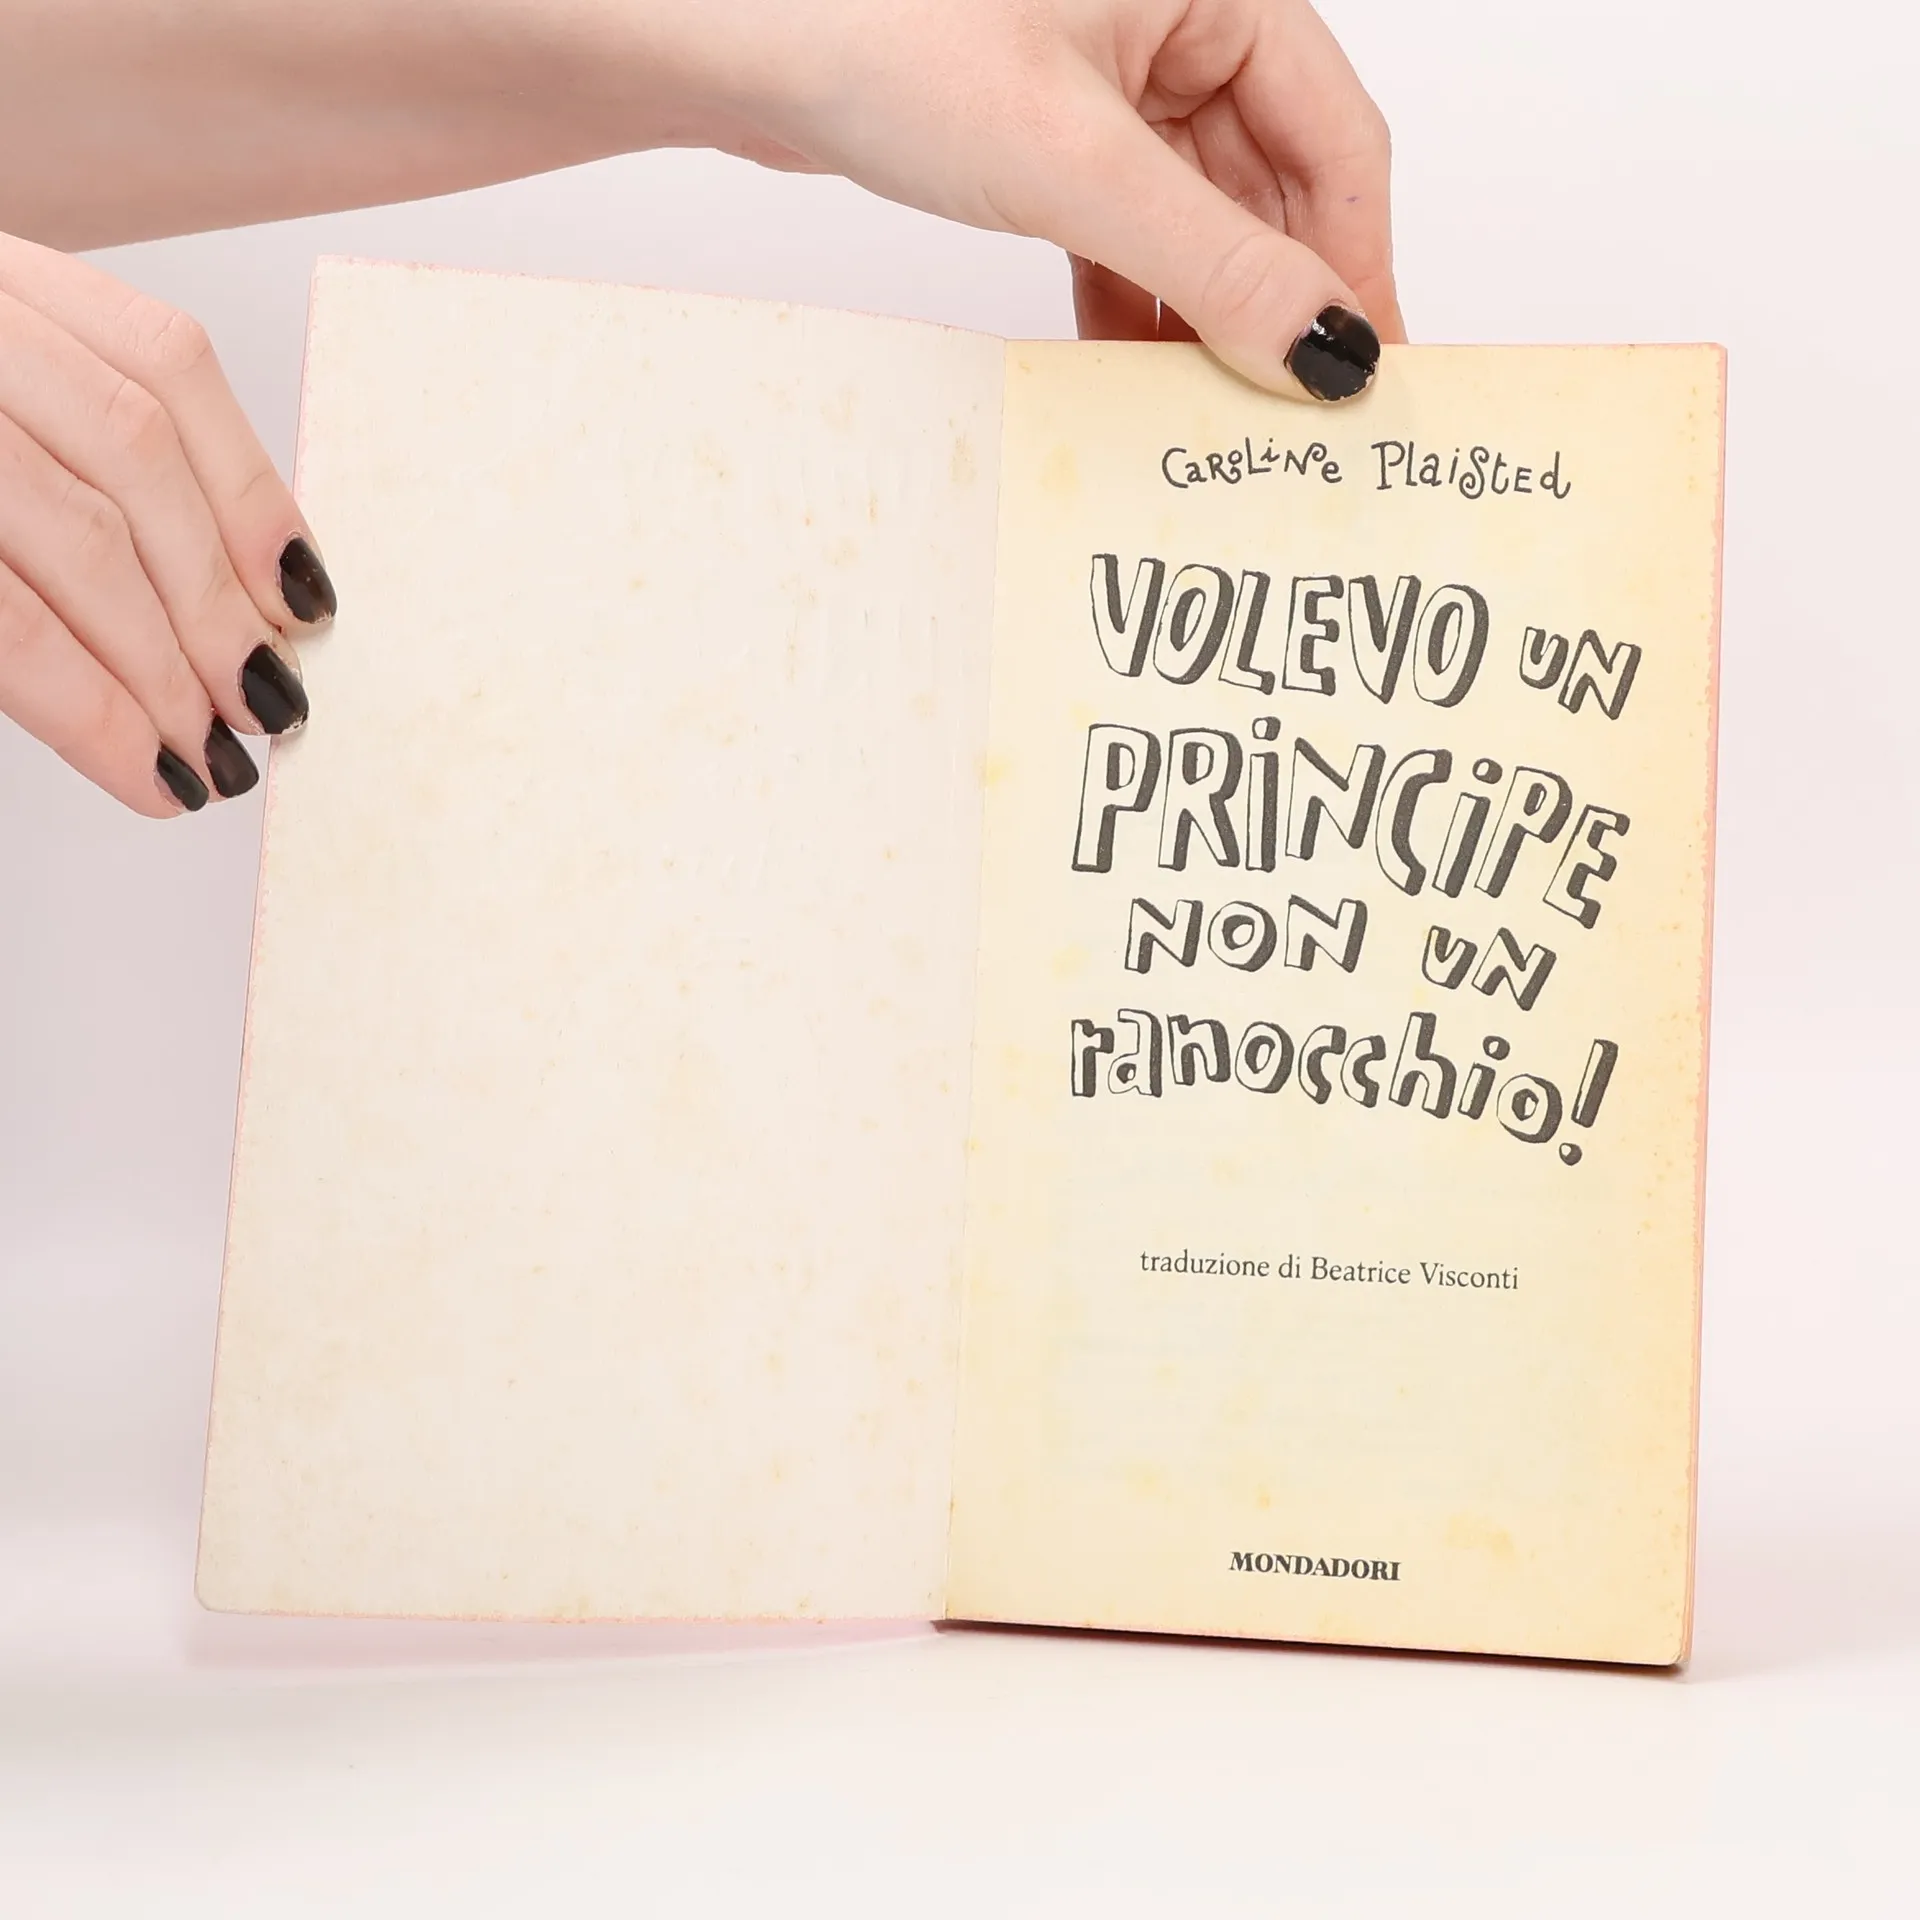 Caroline Plaisted
VOLEVO UN
PRINCIPE
NON UN
ranocchio!
traduzione di Beatrice Visconti
MONDADORI